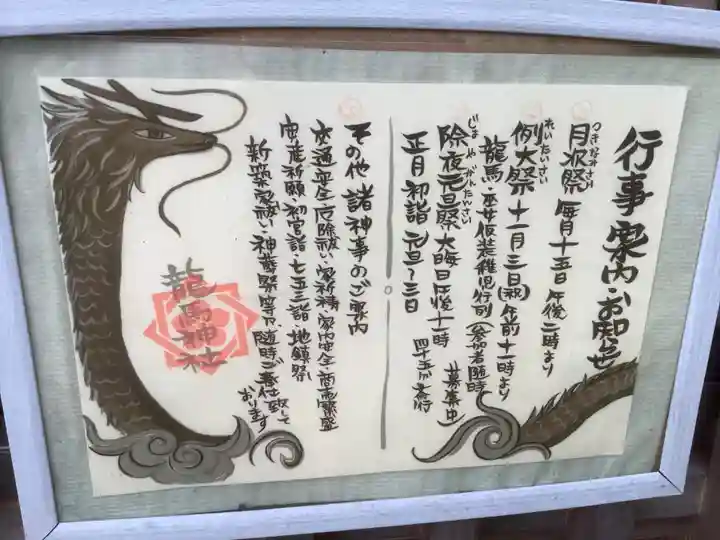 行事案内・お知らせ
つきなみさい
月次祭 毎月十五日 午後二時より
れいたいさい
例大祭 十一月三日(祝)午前十一時より
龍馬・巫女仮装稚児行列(参加者随時
募集中)
じょ や がんたんさい
除夜元旦祭 大晦日午後十一時
四十五分 斎行
正月初詣 元旦〜三日
その他 諸神事のご案内
交通安全・厄除祓い・家祈祷・家内安全・商売繁盛
安産祈願・初宮詣・七五三詣・地鎮祭
新築家祓い・神葬祭等、随時ご奉仕致して
おります
龍馬神社